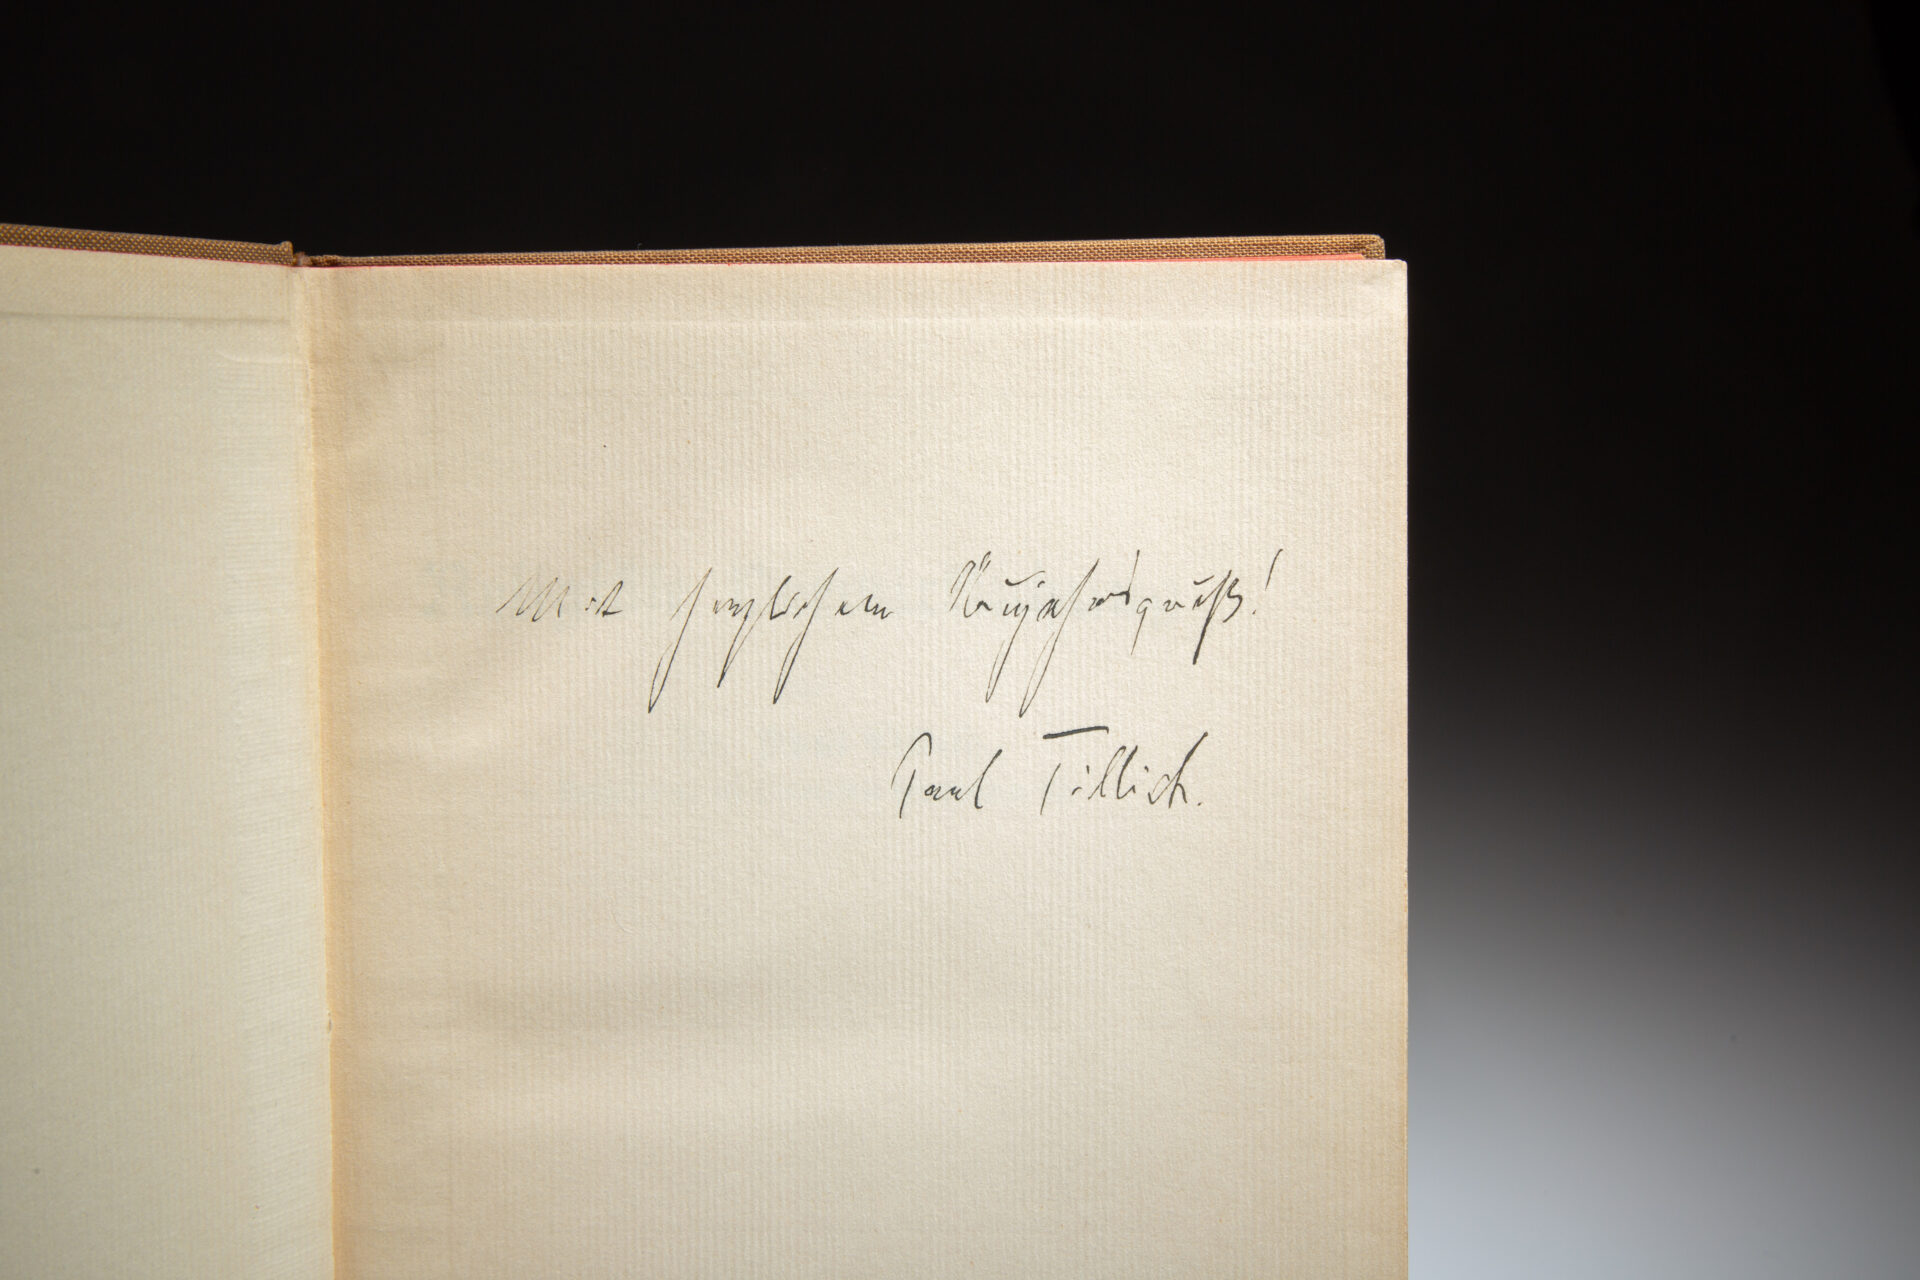 Mit herzlichem Neujahrsgruß!
Paul Tillich.